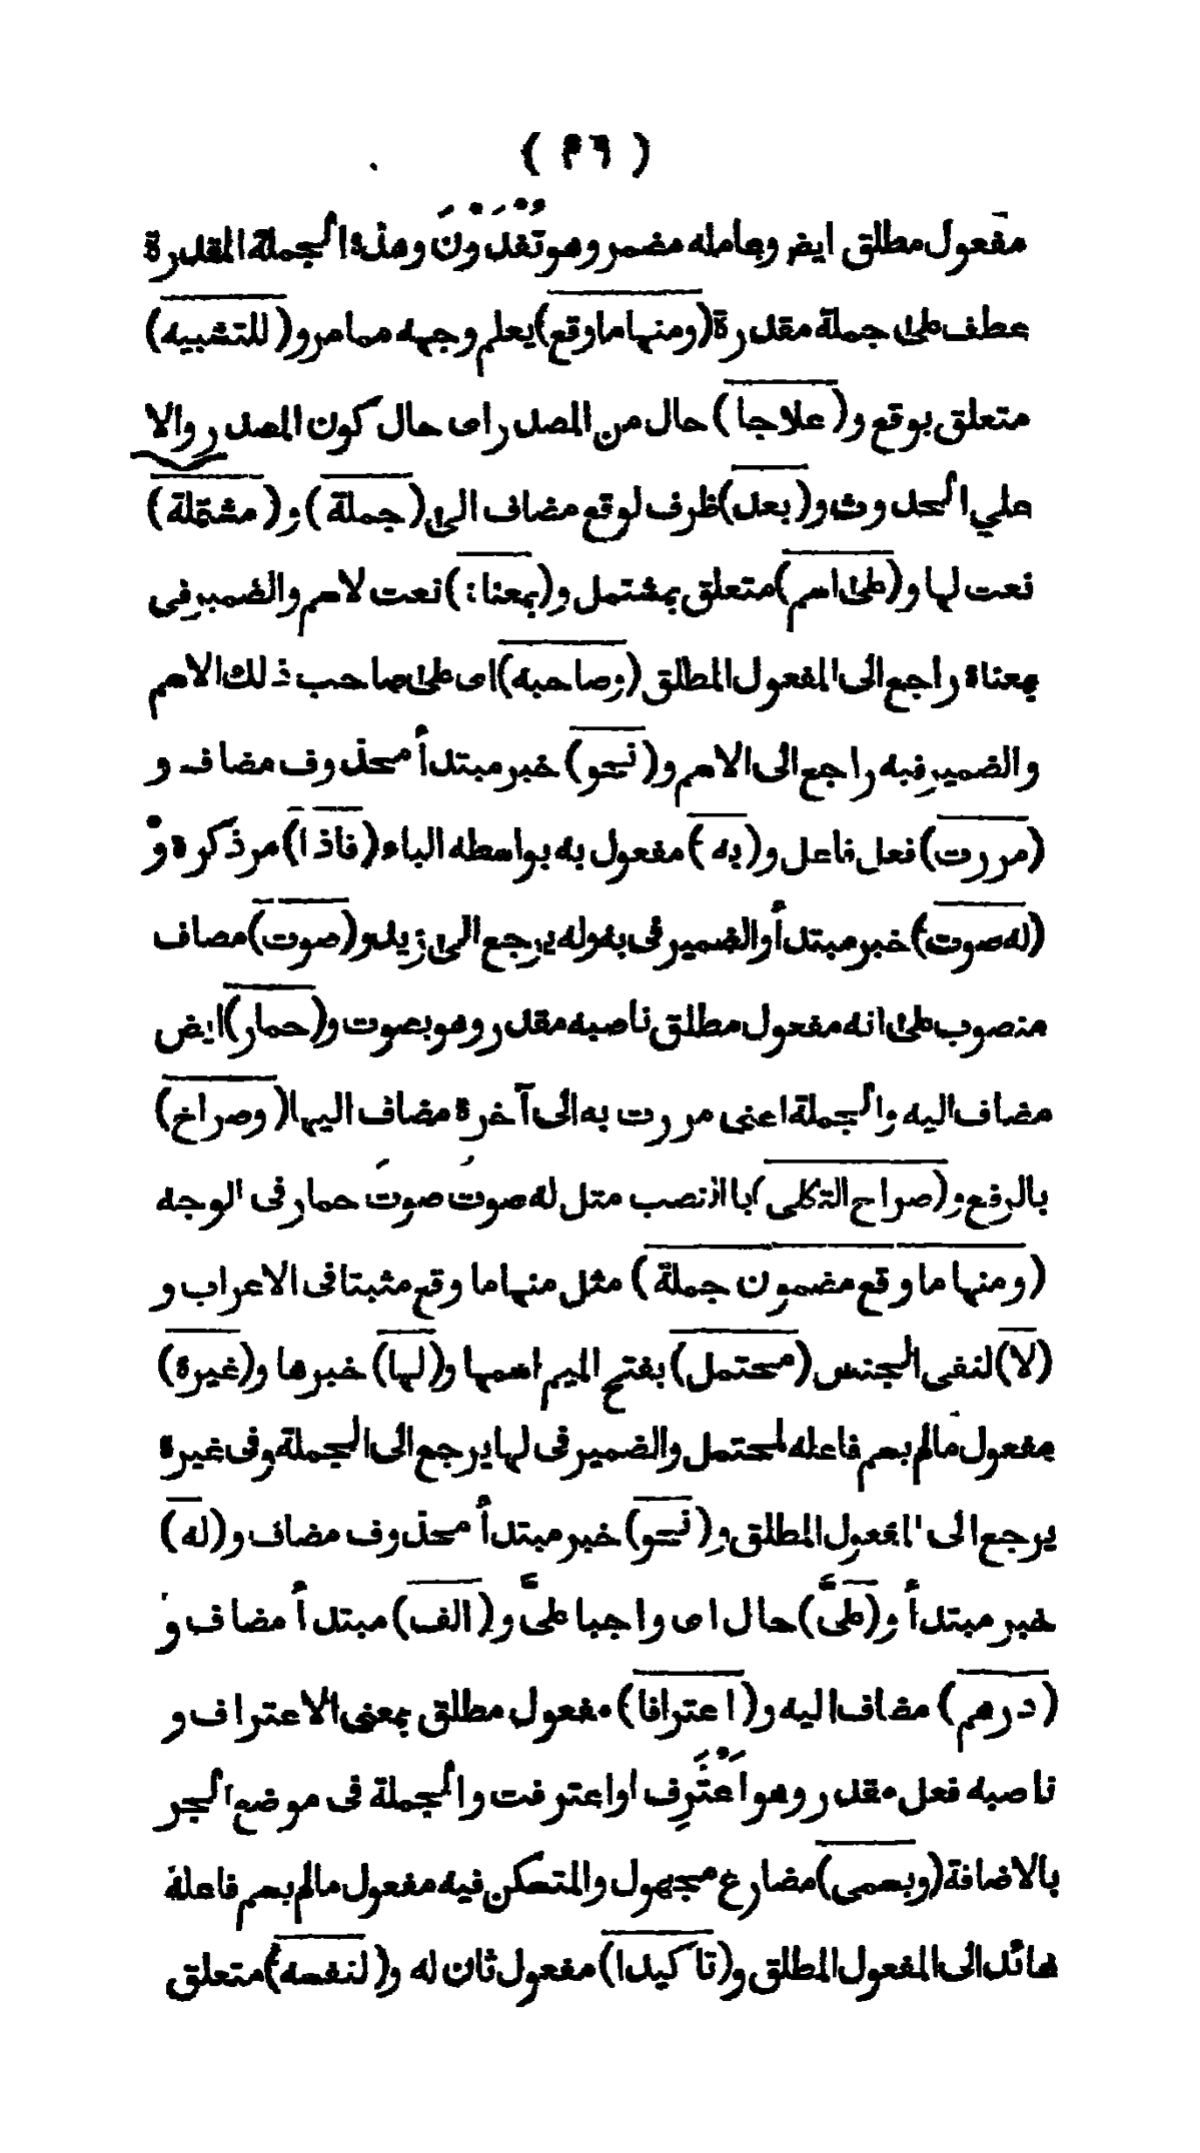 ( ٤٦ )
مفعول مطلق ايض وعامله مضمر وهو تُفْدَوْنَ وهذه الجملة المقدرة
عطف على جملة مقدرة (ومنها ما وقع) يعلم وجهه مما مر و (للتشبيه)
متعلق بوقع و (علاجا) حال من المصدر اى حال كون المصدر والا
علي الحدوث و (بعد) ظرف لوقع مضاف الى (جملة) و (مشتملة)
نعت لها و (على اسم) متعلق بمشتمل و (بمعناه) نعت لاسم والضمير فى
بمعناه راجع الى المفعول المطلق (وصاحبه) اى على صاحب ذلك الاسم
والضمير فيه راجع الى الاسم و (نحو) خبر مبتدأ محذوف مضاف و
(مررت) فعل فاعل و (به) مفعول به بواسطه الباء (فاذا) مر ذكره و
(له صوت) خبر مبتدأ والضمير فى بقوله يرجع الى زيد و (صوت) مضاف
منصوب على انه مفعول مطلق ناصبه مقدر وهو بصوت و (حمار) ايض
مضاف اليه والجملة اعنى مررت به الى آخره مضاف اليها (وصراخ)
بالرفع و (صراح الثكلى) با اذنصب متل له صوتُ صوتَ حمار فى الوجه
(ومنها ما وقع مضمون جملة) مثل منها ما وقع مثبتا فى الاعراب و
(لا) لنفى الجنس (محتمل) بفتح الميم اسمها و (لها) خبرها و (غيره)
مفعول مالم يسم فاعله لمحتمل والضمير فى لها يرجع الى الجملة وفى غيره
يرجع الى المفعول المطلق و (نحو) خبر مبتدأ محذوف مضاف و (له)
خبر مبتدأ و (علىَّ) حال اى واجبا علىَّ و (الف) مبتدأ مضاف و
(درهم) مضاف اليه و (اعترافا) مفعول مطلق بمعنى الاعتراف و
ناصبه فعل مقدر وهو اَعْتَرِف او اعترفت والجملة فى موضع الجر
بالاضافة (ويسمى) مضارع مجهول والمتمكن فيه مفعول مالم يسم فاعله
عائد الى المفعول المطلق و (تاكيدا) مفعول ثان له و (لنفسه) متعلق